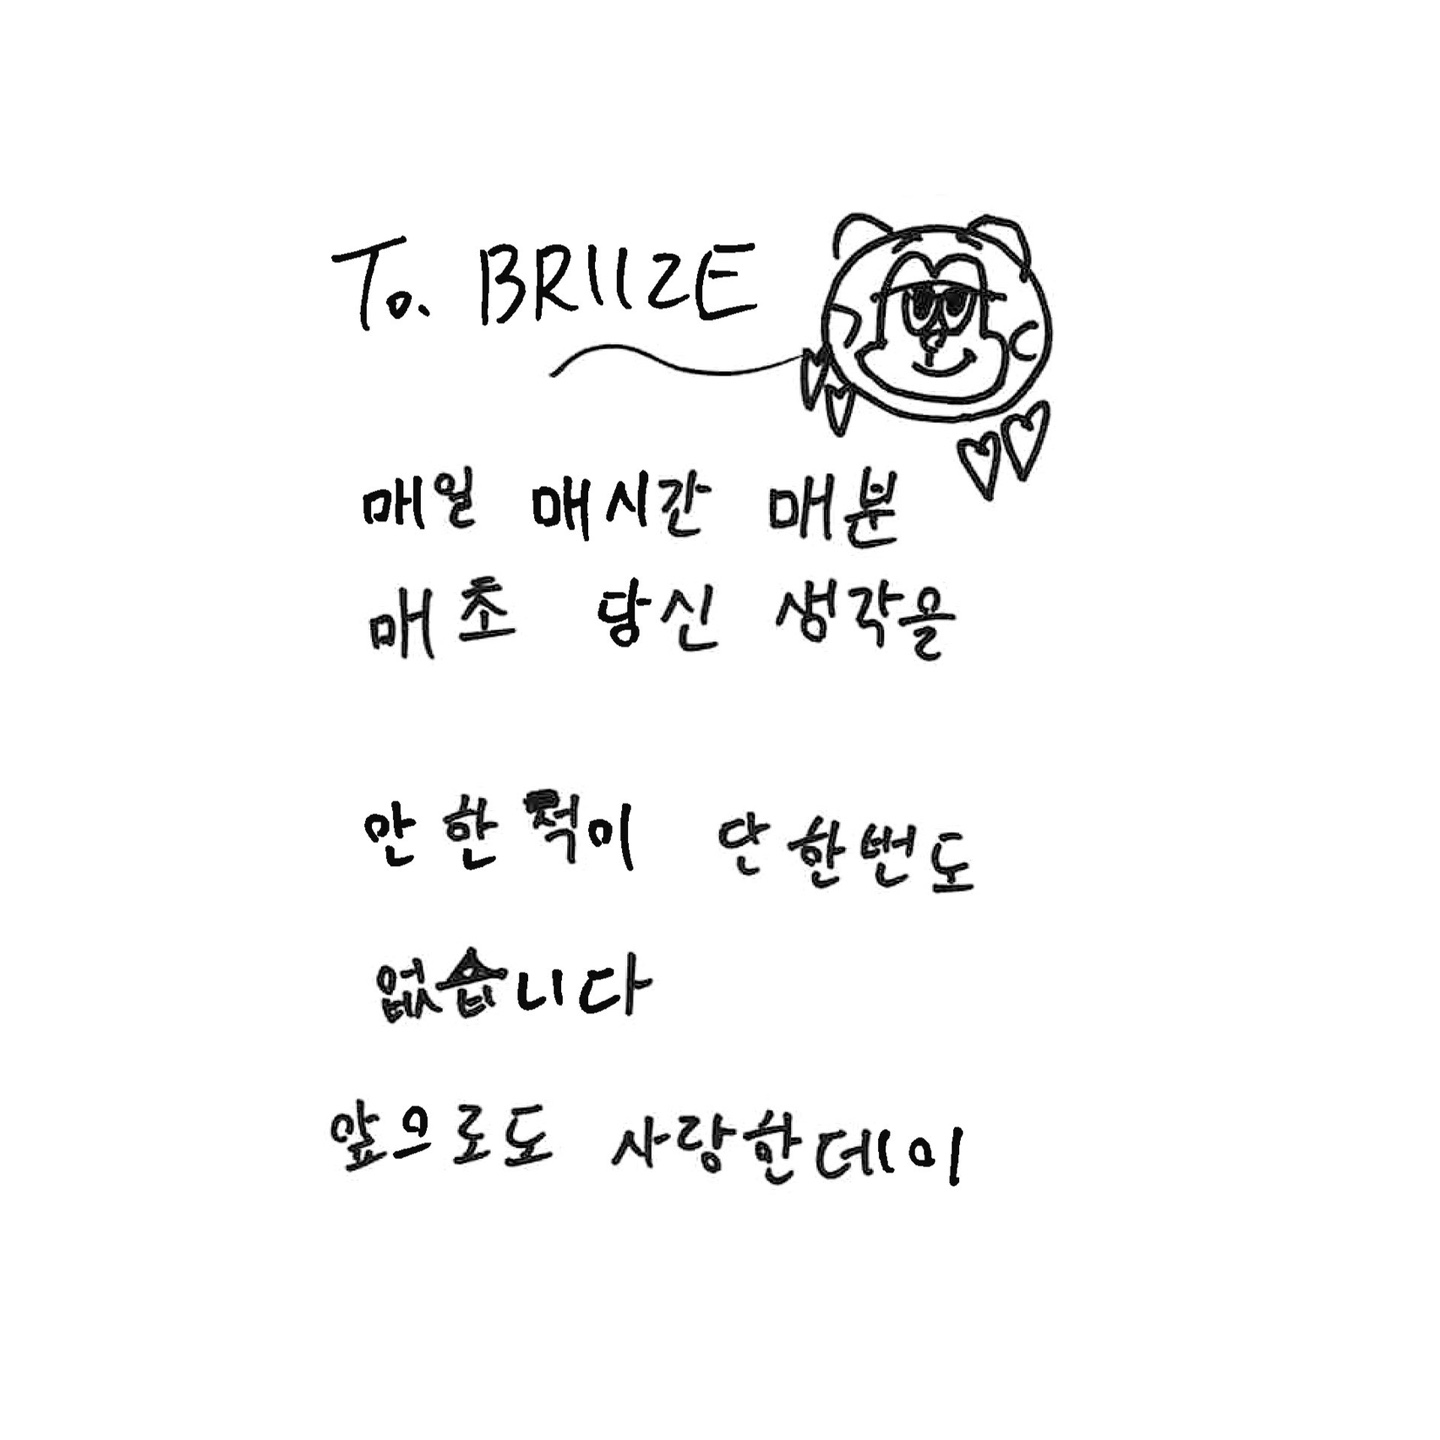 To. BRIIZE
매일 매시간 매분
매초 당신 생각을
안한적이 단한번도
없습니다
앞으로도 사랑한데이